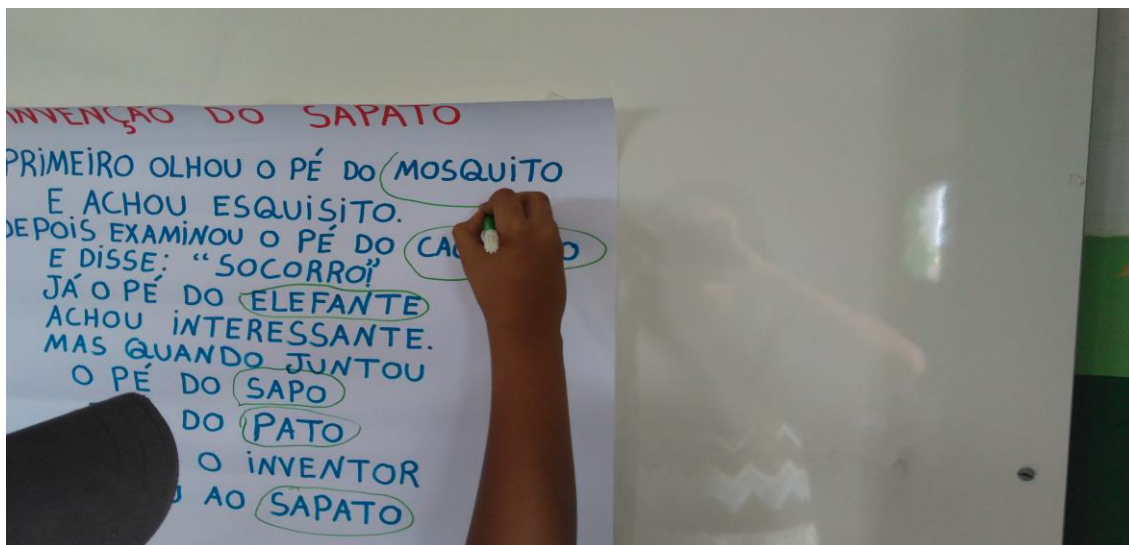 INVENÇÃO DO SAPATO
PRIMEIRO OLHOU O PÉ DO MOSQUITO
E ACHOU ESQUISITO.
DEPOIS EXAMINOU O PÉ DO
E DISSE: "SOCORRO!"
JÁ O PÉ DO ELEFANTE
ACHOU INTERESSANTE.
MAS QUANDO JUNTOU
O PÉ DO SAPO
DO PATO
O INVENTOR
AO SAPATO